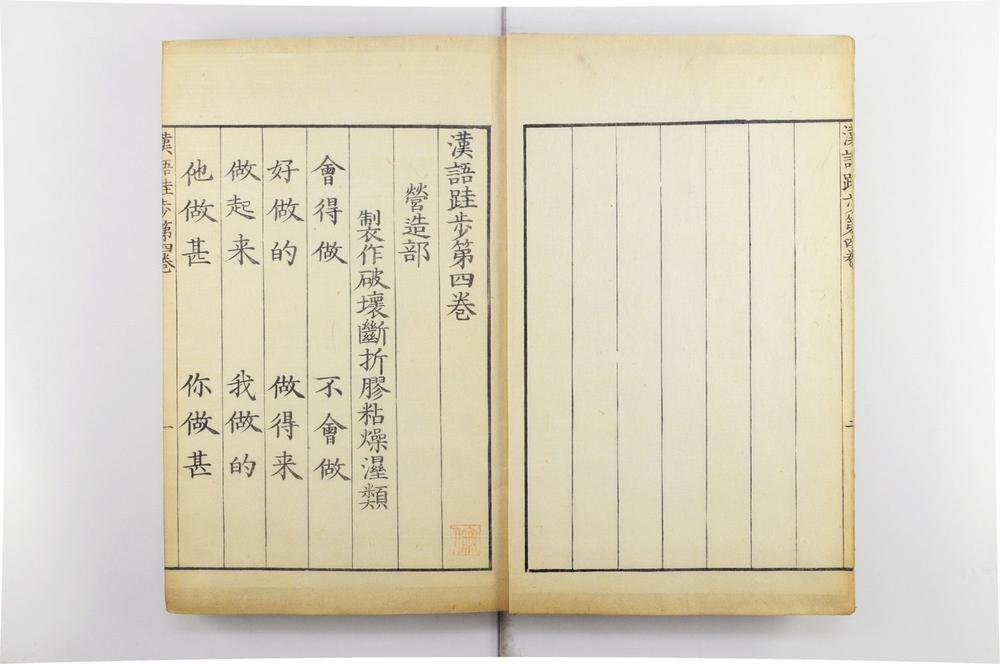 漢語跬步第四巻
漢語跬步第四巻
營造部
製作破壞斷折膠粘燥濕類
會得做　不會做
好做的　做得来
做起来　我做的
他做甚　你做甚
漢語跬步第四巻
一